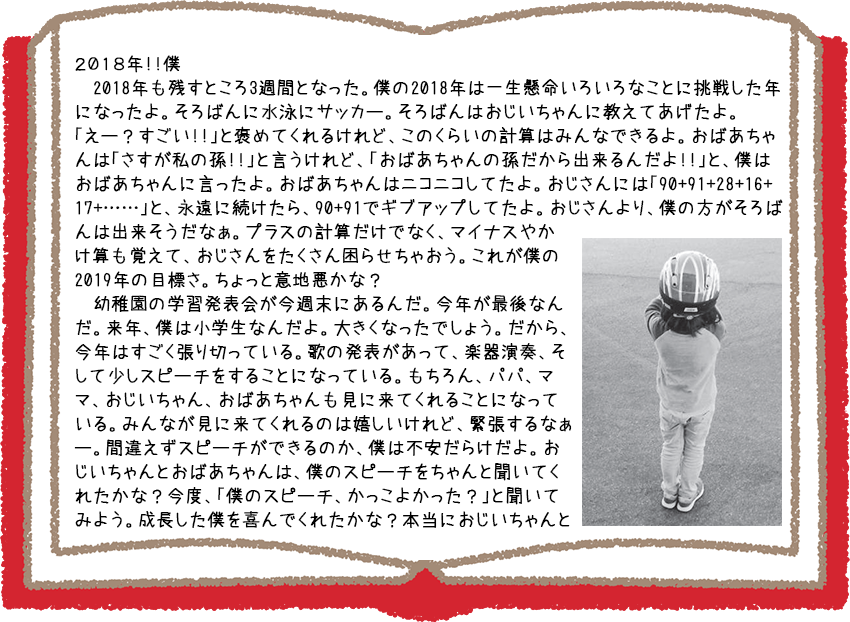 2018年!!僕
　2018年も残すところ3週間となった。僕の2018年は一生懸命いろいろなことに挑戦した年
になったよ。そろばんに水泳にサッカー。そろばんはおじいちゃんに教えてあげたよ。
「えー?すごい!!」と褒めてくれるけれど、このくらいの計算はみんなできるよ。おばあちゃ
んは「さすが私の孫!!」と言うけれど、「おばあちゃんの孫だから出来るんだよ!!」と、僕は
おばあちゃんに言ったよ。おばあちゃんはニコニコしてたよ。おじさんには「90+91+28+16+
17+……」と、永遠に続けたら、90+91でギブアップしてたよ。おじさんより、僕の方がそろば
んは出来そうだなぁ。プラスの計算だけでなく、マイナスやか
け算も覚えて、おじさんをたくさん困らせちゃおう。これが僕の
2019年の目標さ。ちょっと意地悪かな?
　幼稚園の学習発表会が今週末にあるんだ。今年が最後なん
だ。来年、僕は小学生なんだよ。大きくなったでしょう。だから、
今年はすごく張り切っている。歌の発表があって、楽器演奏、そ
して少しスピーチをすることになっている。もちろん、パパ、マ
マ、おじいちゃん、おばあちゃんも見に来てくれることになって
いる。みんなが見に来てくれるのは嬉しいけれど、緊張するなぁ
ー。間違えずスピーチができるのか、僕は不安だらけだよ。お
じいちゃんとおばあちゃんは、僕のスピーチをちゃんと聞いてく
れたかな?今度、「僕のスピーチ、かっこよかった?」と聞いて
みよう。成長した僕を喜んでくれたかな?本当におじいちゃんと